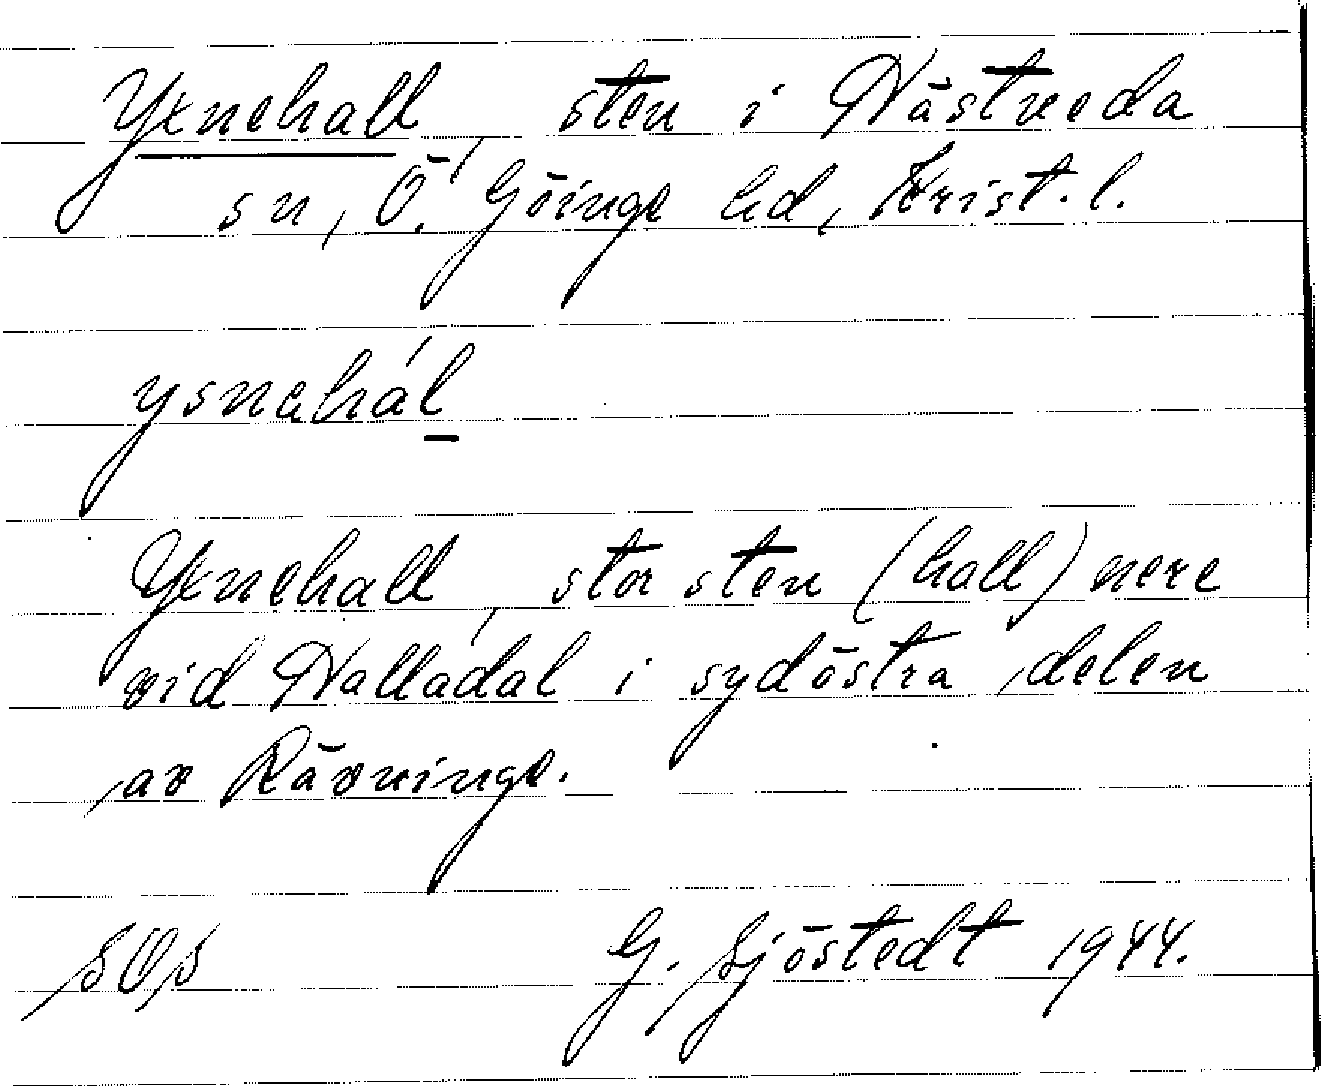 Yxnehall, sten i Nästveda
sn, Ö. Göinge hd, Krist. l.
ysnahál
Yxnehall, stor sten (hall) nere
vid Halladal i sydöstra delen
av Rävninge.
SOS G. Sjöstedt 1944.